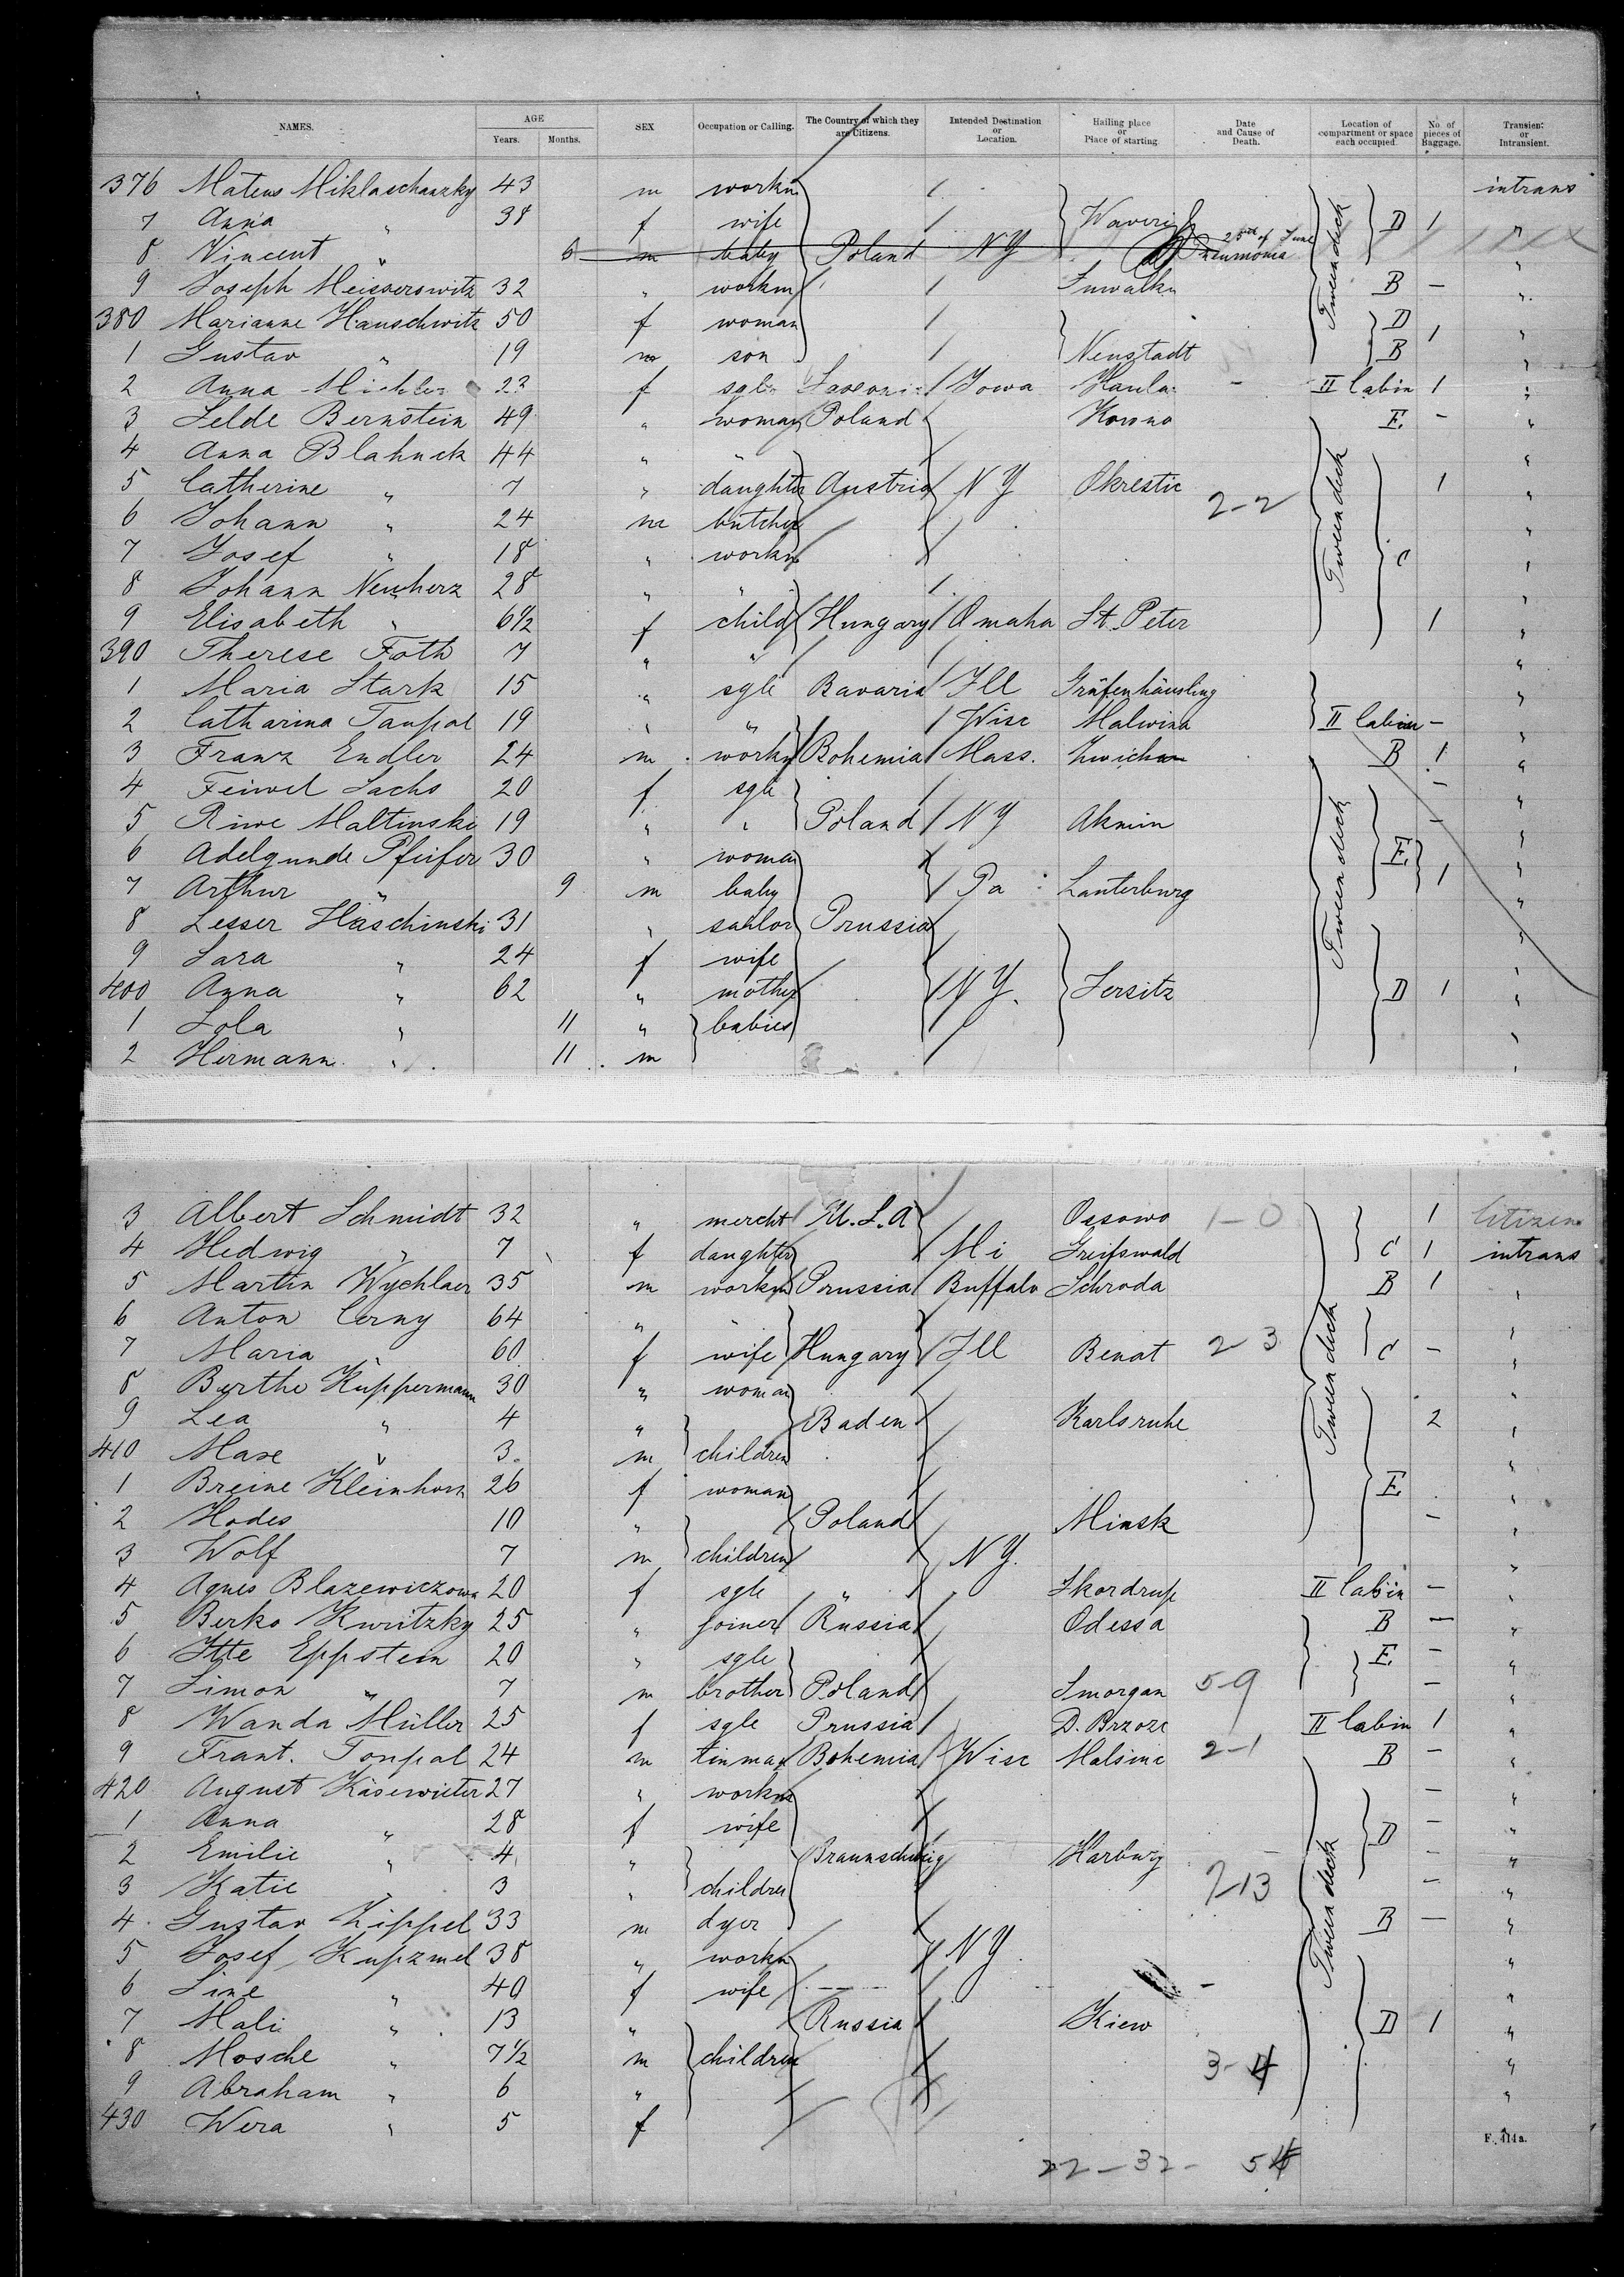 NAMES. AGE Years. Months. SEX Occupation or Calling. The Country of which they are Citizens. Intended Destination or Location. Hailing place or Place of starting. Date and Cause of Death. Location of compartment or space each occupied. No. of pieces of Baggage. Transient or Intransient.
376 Mateus Miklaschanzky 43 m workm intrans
7 Anna " 38 f wife D 1 "
8 Vincent " 6 m baby Poland NY 25th of June Pneumonia "
9 Joseph Meisserowitz 32 " workm Suwalki B - "
380 Marianne Hauschwitz 50 f woman D 1 "
1 Gustav " 19 m son Neustadt B "
2 Anna Michler 23 f sgle Iowa Kaula - II Cabin 1 "
3 Selde Bernstein 49 " woman Poland Kowno E. - "
4 Anna Blahnek 44 " " "
5 Catherine " 7 " daughter Austria NY Okrestic 2-2 Tweendeck 1 "
6 Johann " 24 m butcher "
7 Josef " 18 " workm C "
8 Johann Neuherz 28 " " "
9 Elisabeth " 6½ f child Hungary Omaha St. Peter 1 "
390 Therese Foth 7 " " "
1 Maria Stark 15 " sgle Bavaria Ill Gräfenhäusling "
2 Catharina Taupal 19 " " Wisc Malwina II Cabin - "
3 Franz Endler 24 m workm Bohemia Mass. Zwickau B 1 "
4 Feiwel Sachs 20 f sgle - "
5 Riwe Maltinski 19 " " Poland NY Akmin - "
6 Adelgunde Pfeifer 30 " woman Tweendeck E. "
7 Arthur " 9 m baby Pa Lauterburg 1 "
8 Lesser Haschinski 31 " sailor Prussia "
9 Sara " 24 f wife "
400 Anna " 62 " mother NY. Jersitz D 1 "
1 Lola " 11 " babies "
2 Hermann " 11 m "
3 Albert Schmidt 32 " mercht U.S.A Ossowo 1-0 1 Citizen
4 Hedwig " 7 f daughter Mi Greifswald C 1 intrans
5 Martin Wychlacz 35 m workm Prussia Buffalo Schroda B 1 "
6 Anton Cerny 64 " " "
7 Maria " 60 f wife Hungary Ill Benat 2-3 Tweendeck C - "
8 Berthe Kuppermann 30 " woman "
9 Lea " 4 " Baden Karlsruhe 2 "
410 Max " 3 m children "
1 Breine Kleinhorn 26 f woman E. "
2 Hodes 10 " Poland Minsk - "
3 Wolf 7 m children NY. "
4 Agnes Blazewiczowa 20 f sgle " Skordrup II Cabin - "
5 Berko Kwritzky 25 " joiner Russia Odessa B - "
6 Itte Eppstein 20 " sgle E. - "
7 Simon " 7 m brother Poland Smorgan 5-9 - "
8 Wanda Müller 25 f sgle Prussia D. Brzozc II Cabin 1 "
9 Frant. Toupal 24 m tinman Bohemia Wisc Malsinc 2-1 B - "
420 August Käsewieter 27 " workm - "
1 Anna " 28 f wife D - "
2 Emilie " 4 " Braunschweig Harburg - "
3 Katie " 3 " children 2-13 Tweendeck - "
4 Gustav Zippel 33 m dyer B - "
5 Josef Kupzmel 38 " workm NY "
6 Sine " 40 f wife - "
7 Mali " 13 " Russia Kiew D 1 "
8 Mosche " 7½ m children 3-4 "
9 Abraham " 6 " "
430 Wera " 5 f "
F. 414a.
22-32- 54